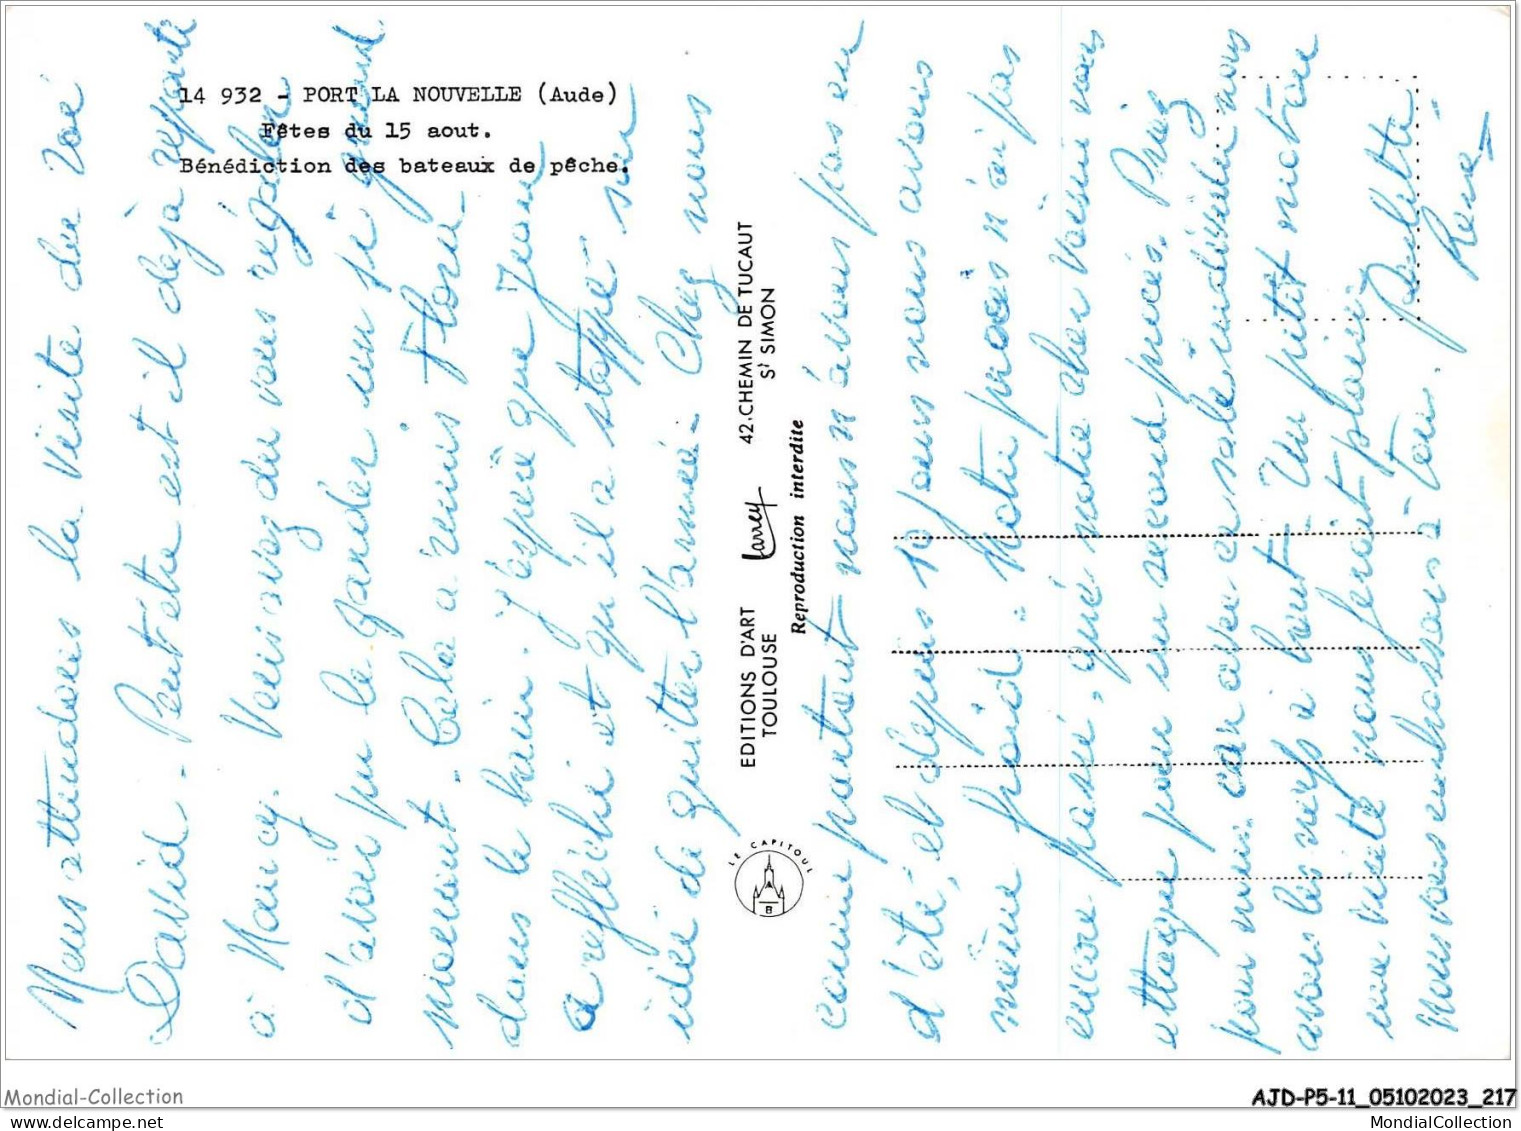 14 932 - PORT LA NOUVELLE (Aude)
Fêtes du 15 aout.
Bénédiction des bateaux de pêche.
Nous attendons la visite du Zoé
David - Peut être est il déjà reparti
à Nancy. Vous avez du vous régaler
d'avoir pu le garder un si grand
moment. Cela a remis Flora
dans le bain. J'espère que Jean
a réfléchi et qu'il a stoppé son
idée de quitter l'armée - Chez nous
EDITIONS D'ART Larrey 42.CHEMIN DE TUCAUT
TOULOUSE ST SIMON
Reproduction interdite
LE CAPITOUL
comme partout nous n'avons pas eu
d'été, et depuis 10 jours nous avons
même froid. Notre procès n'a pas
encore passé, que notre cher voisin nous
attaque pour un second procès. Priez
pour nous. car avec ce sale individu nous
avons les nerfs à bout - Un petit mot ou
une visite nous ferait plaisir
Nous vous embrassons - tous.
Paulette
René
Mondial-Collection
AJD-P5-11_05102023_217
MondialCollection